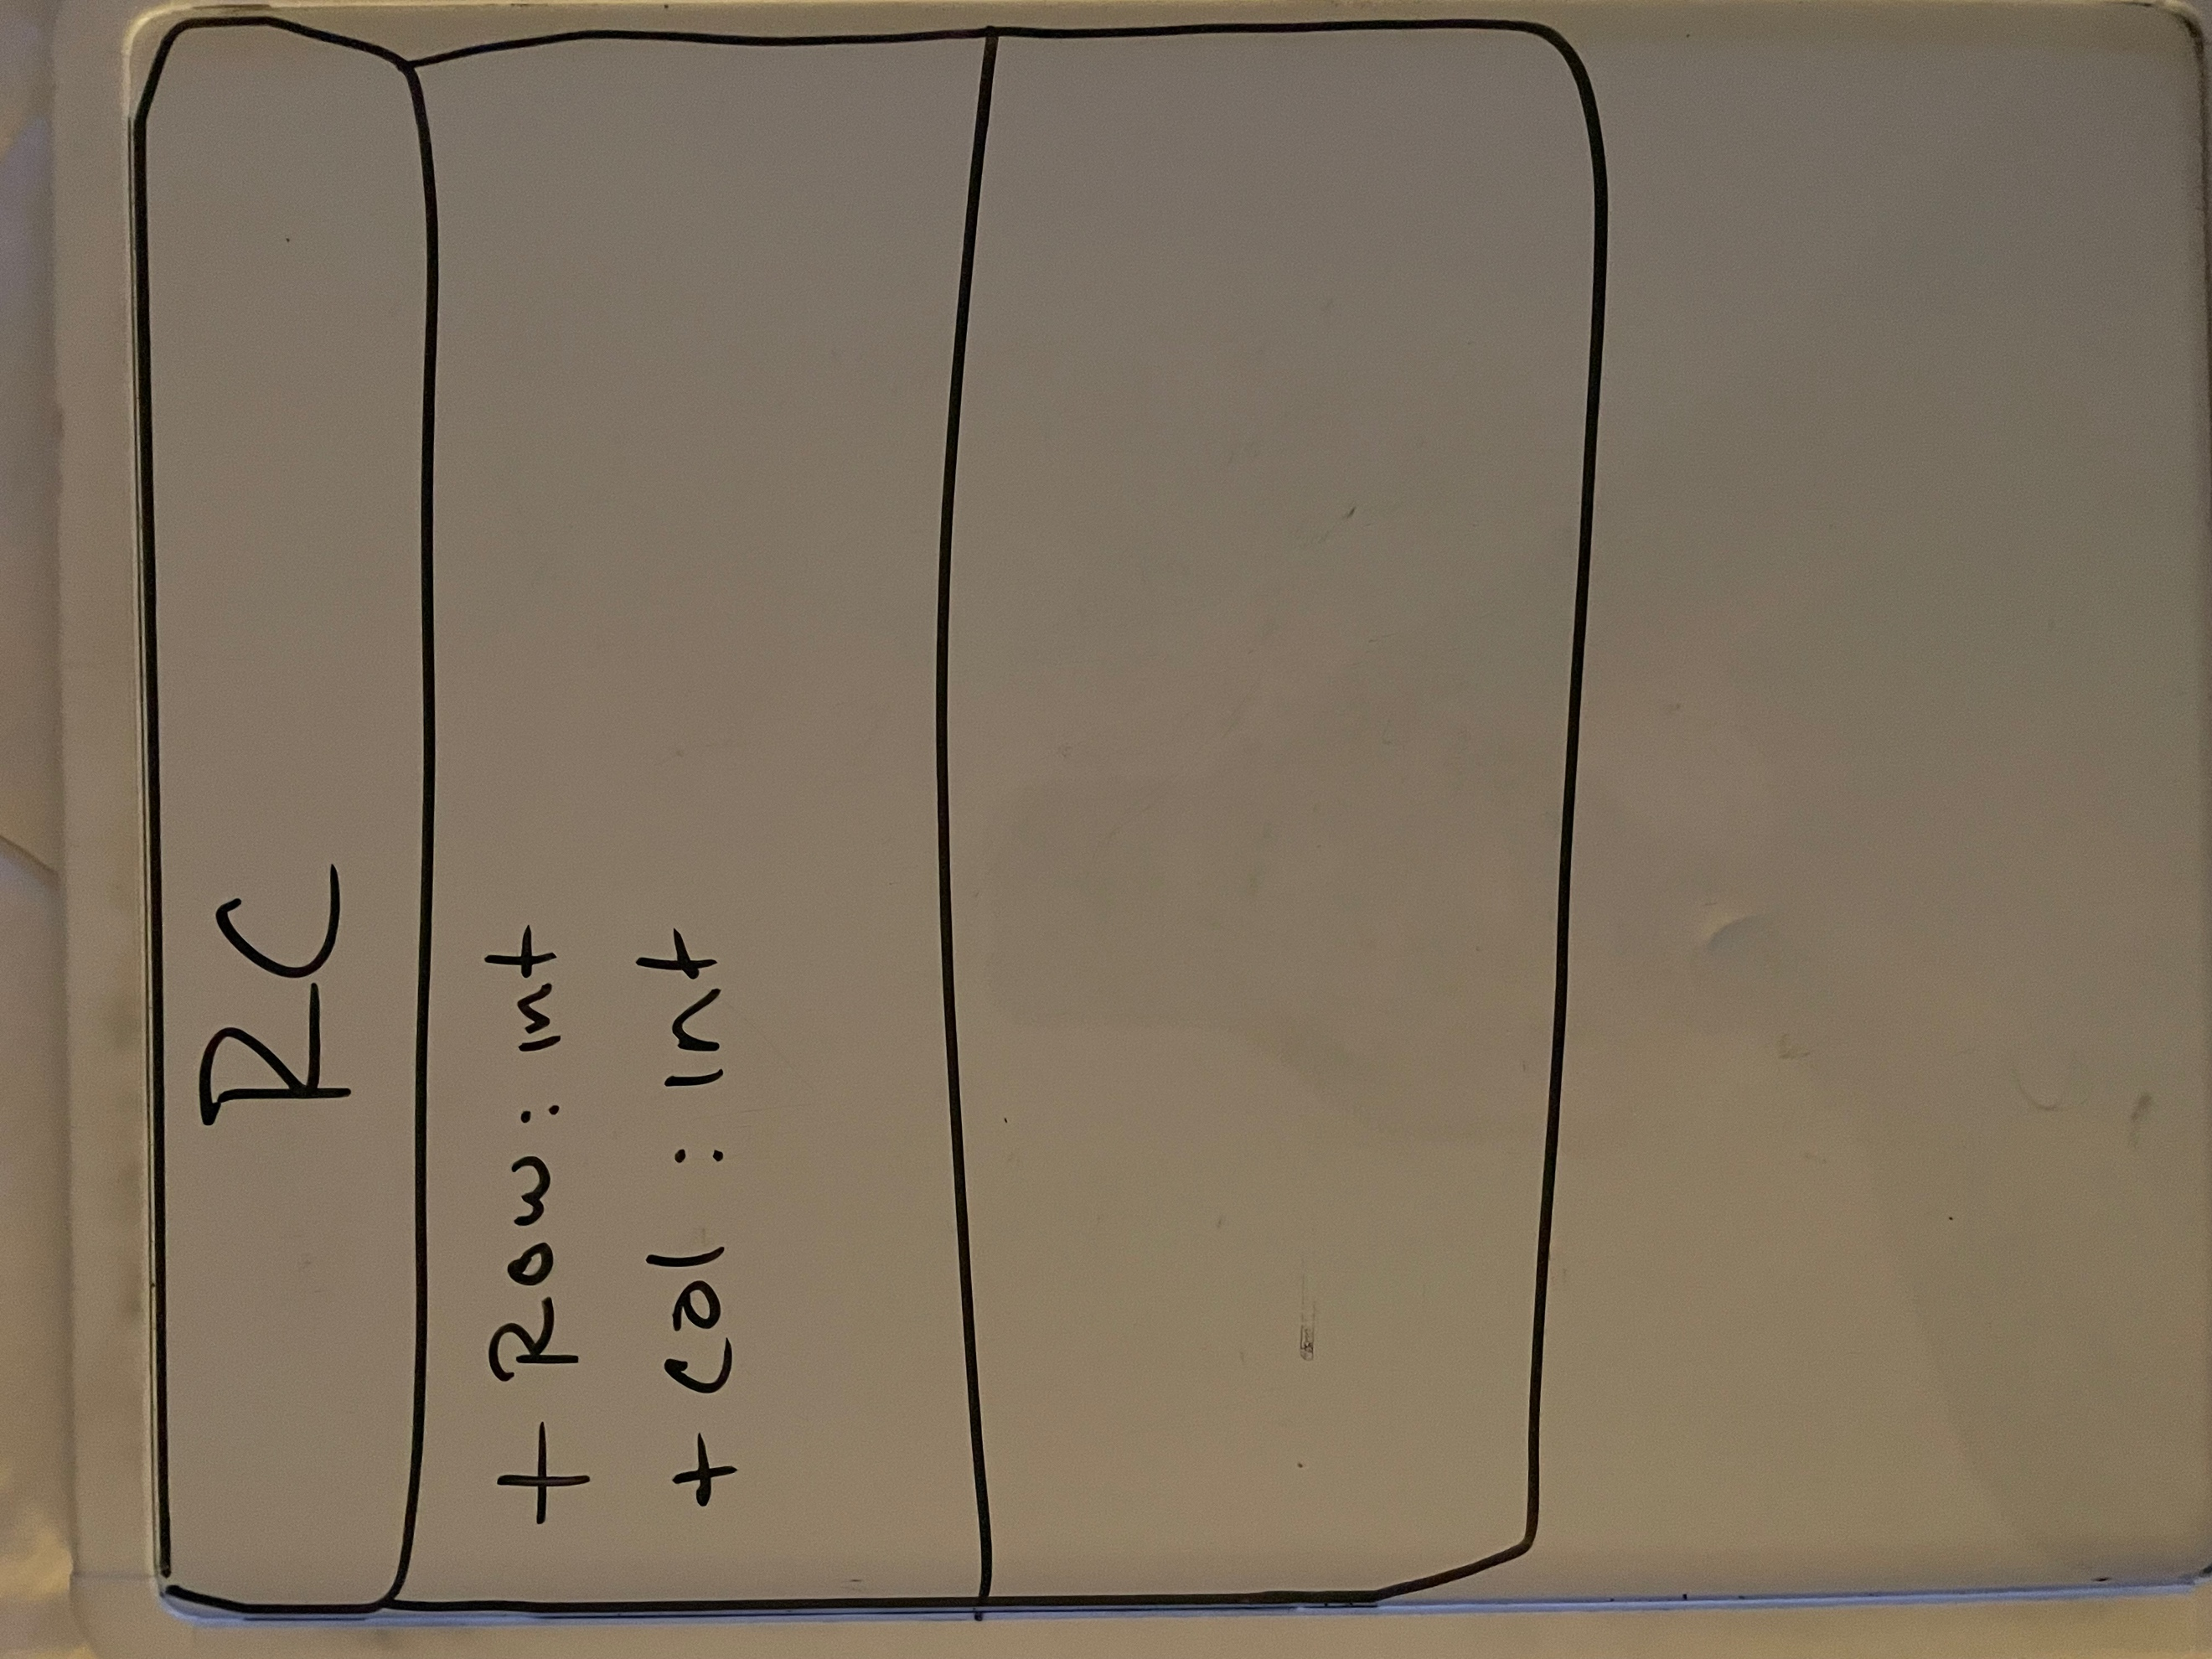 RC
+ Row: int
+ Col : int